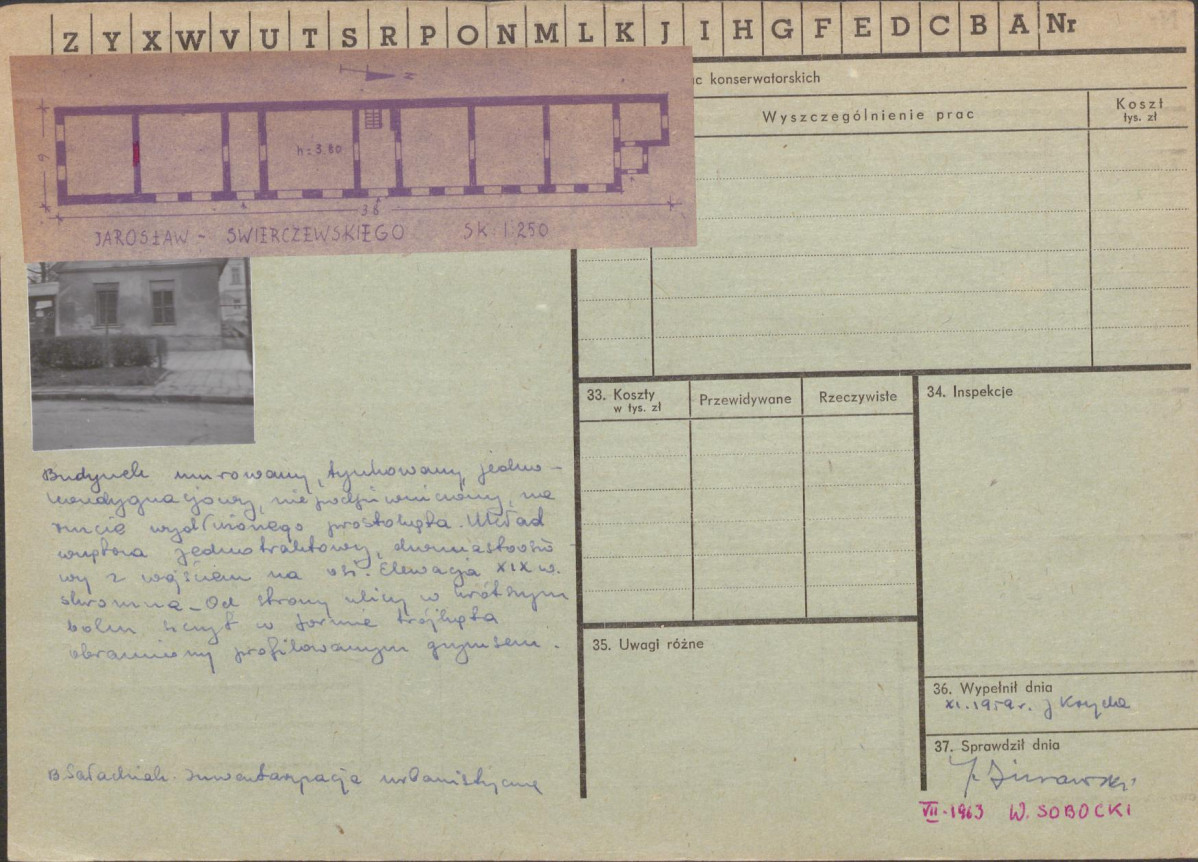 Z Y X W V U T S R P O N M L K J I H G F E D C B A Nr
ac konserwatorskich
Wyszczególnienie prac
Koszt
tys. zł
N
h=3.80
9
38
JAROSŁAW - ŚWIERCZEWSKIEGO SK 1:250
33. Koszty
w tys. zł
Przewidywane
Rzeczywiste
34. Inspekcje
Budynek murowany, tynkowany, jedno-
kondygnacjowy, niepodpiwniczony, na
rzucie wydłużonego prostokąta. Układ
wnętrza jednotraktowy,
wy z wejściem na osi. Elewacja XIX w.
skromna. Od strony ulicy w krótszym
boku szczyt w formie trójkąta
obramiony profilowanym gzymsem.
35. Uwagi różne
36. Wypełnił dnia
XI.1959r. J
37. Sprawdził dnia
VII-1963 W. SOBOCKI
B. Inwentaryzacja urbanistyczna